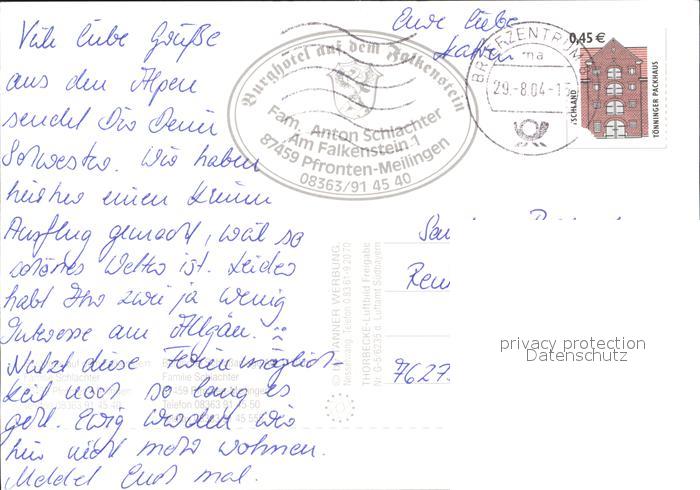 Viele liebe Grüße
aus den Alpen
sendet Dir Deine
Schwester. Wir haben
hierher einen kleinen
Ausflug gemacht, weil so
schönes Wetter ist. Leider
habt Ihr zwei ja wenig
Interesse am Allgäu.
Nutzt diese Ferienmöglich-
keit noch so lang es
geht. Ewig werden wir
hier nicht mehr wohnen.
Meldet Euch mal.
Eure liebe
Burghotel auf dem Falkenstein
Fam. Anton Schlachter
Am Falkenstein 1
87459 Pfronten-Meilingen
08363/91 45 40
BRIEFZENTRUM
29.-8.04-1
0,45 €
TÖNNINGER PACKHAUS
7627
© TANNER WERBUNG,
THORBECKE-Luftbild Freigabe
Familie Schlachter
Telefon 08363 91 45 50
privacy protection
Datenschutz